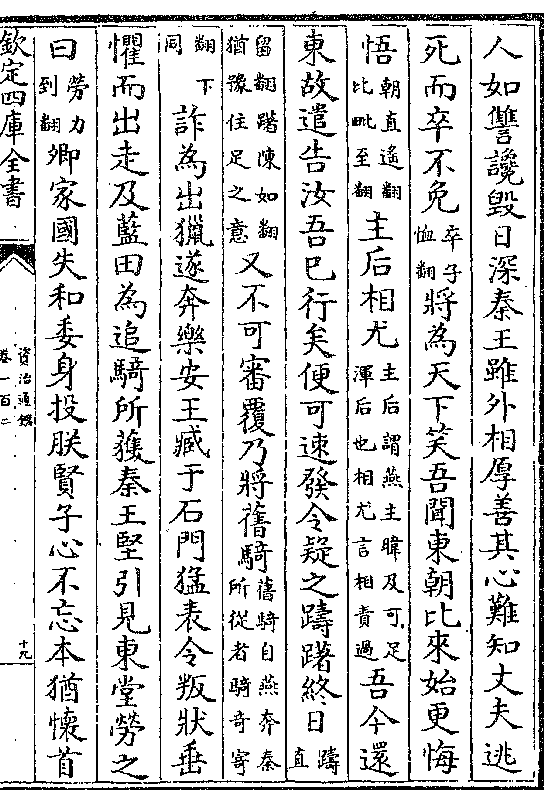 人如讐讒毁日深秦王雖外相厚善其心難知丈夫逃
死而卒不免卒子恤翻將為天下笑吾聞東朝比來始更悔
悟朝直遥翻比毗至翻主后相尤主后謂燕主暐及可足渾后也相尤言相責過吾今還
東故遣告汝吾已行矣便可速發令疑之躊躇終日躊直
留翻躇陳如翻猶豫住足之意又不可審覆乃將舊騎舊騎自燕奔秦所從者騎奇寄
翻下同詐為出獵遂奔樂安王臧于石門猛表令叛狀垂
懼而出走及藍田為追騎所獲秦王堅引見東堂勞之
曰勞力到翻卿家國失和委身投朕賢子心不忘本猶懷首
欽定四庫全書
資治通鑑
卷一百二
十九